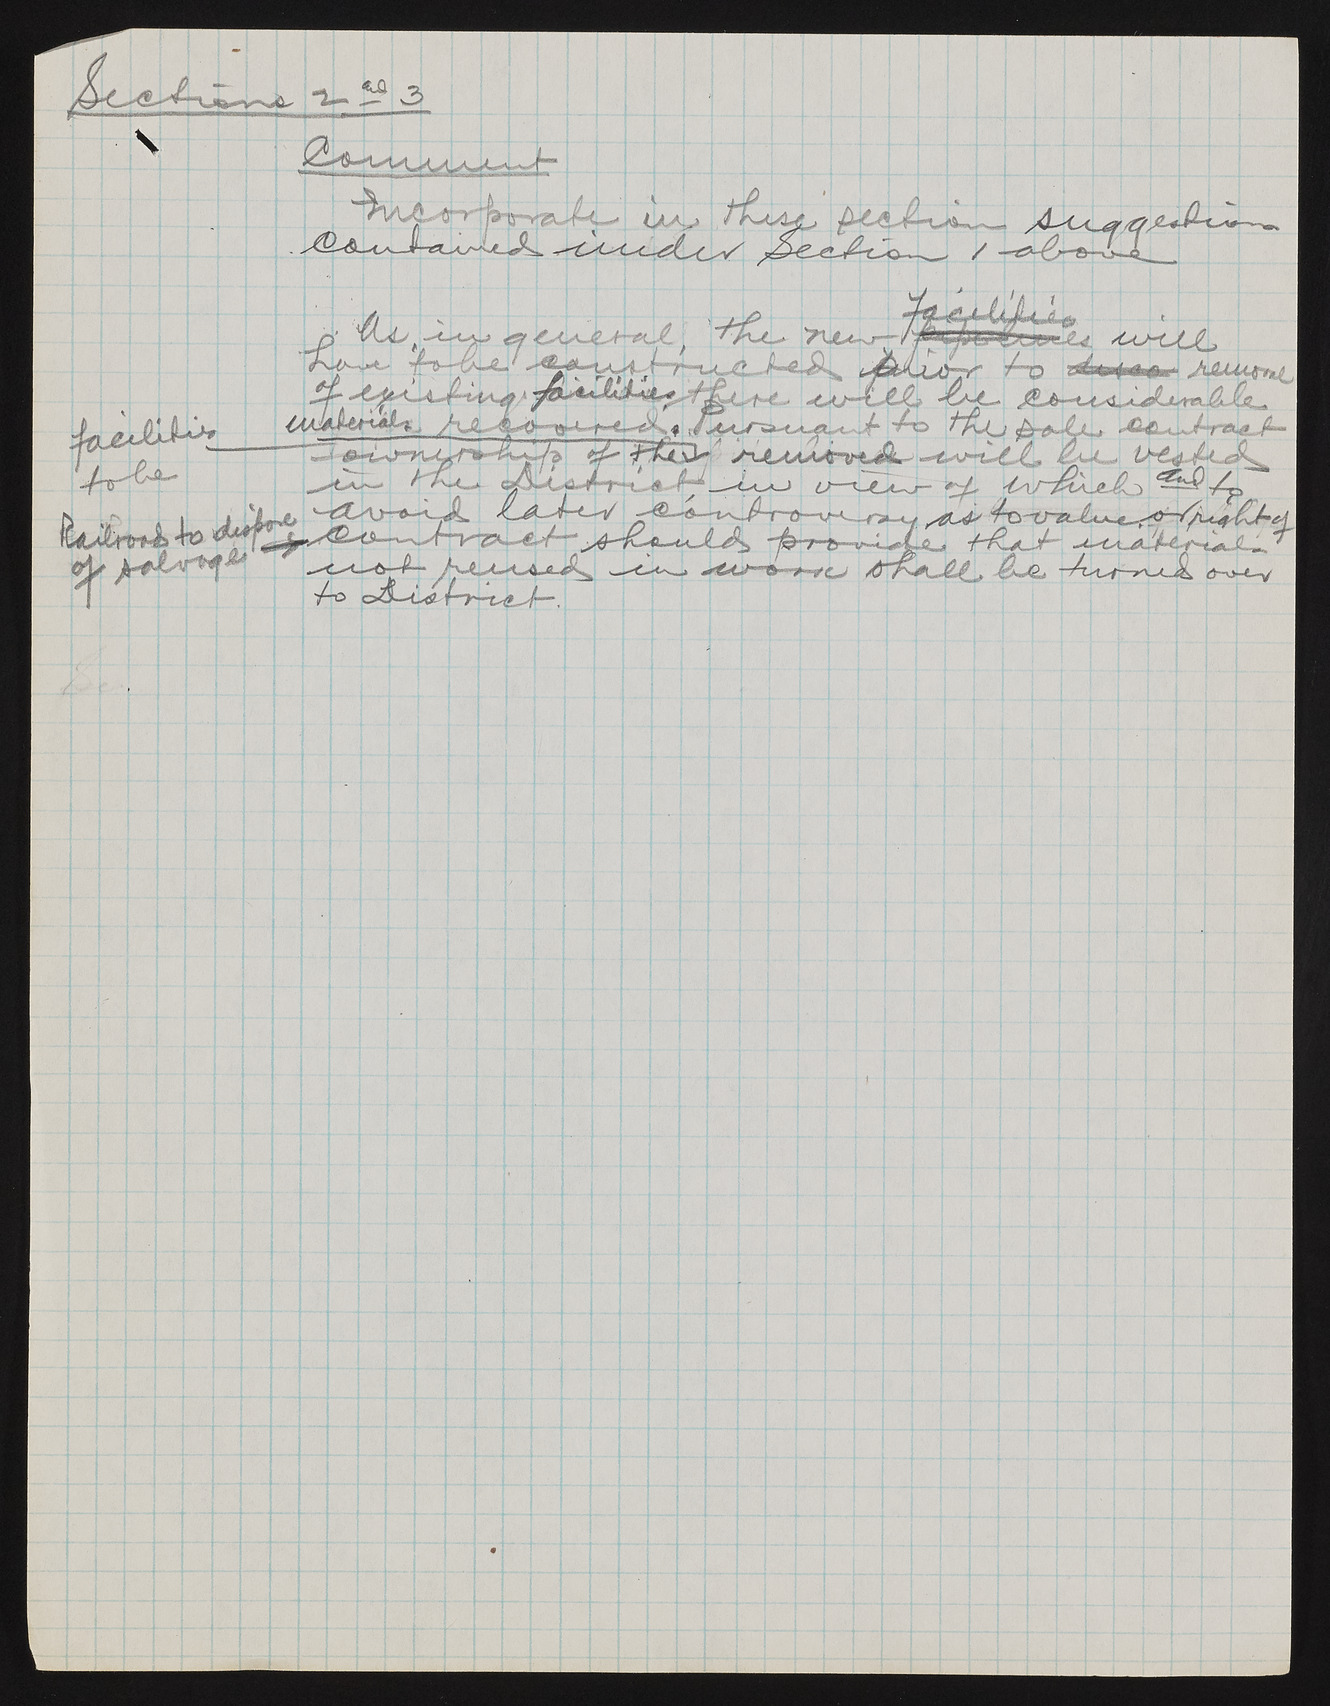 Sections 2 and 3
Comment
Incorporate in these section suggestions
contained under Section 1 above
facilities
As, in general, the new pipelines will
have to be constructed prior to disco remove
of existing facilities there will be considerable
materials recovered. Pursuant to the sale contract
facilities
ownership of the removed will be vested
to be
in the District in view of which and to
avoid later controversy as to value or right of
Railroad to dispose
contract should provide that materials
of salvage
not reused in work shall be turned over
to District.
Se